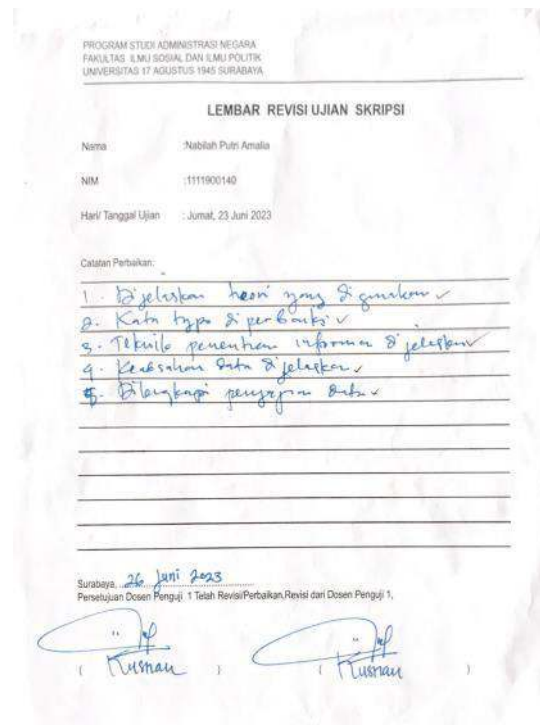 PROGRAM STUDI ADMINISTRASI NEGARA
FAKULTAS ILMU SOSIAL DAN ILMU POLITIK
UNIVERSITAS 17 AGUSTUS 1945 SURABAYA
LEMBAR REVISI UJIAN SKRIPSI
Nama :Nabilah Putri Amalia
NIM :1111900140
Hari/ Tanggal Ujian : Jumat, 23 Juni 2023
Catatan Perbaikan:
1. Dijelaskan teori yang digunakan ✓
2. Kata typo diperbaiki ✓
3. Teknik penentuan informan dijelaskan ✓
4. Keabsahan data dijelaskan ✓
5. Dilengkapi penyajian data ✓
Surabaya, 26 Juni 2023
Persetujuan Dosen Penguji 1 Telah Revisi/Perbaikan,Revisi dari Dosen Penguji 1,
( Kusnan ) ( Kusnan )